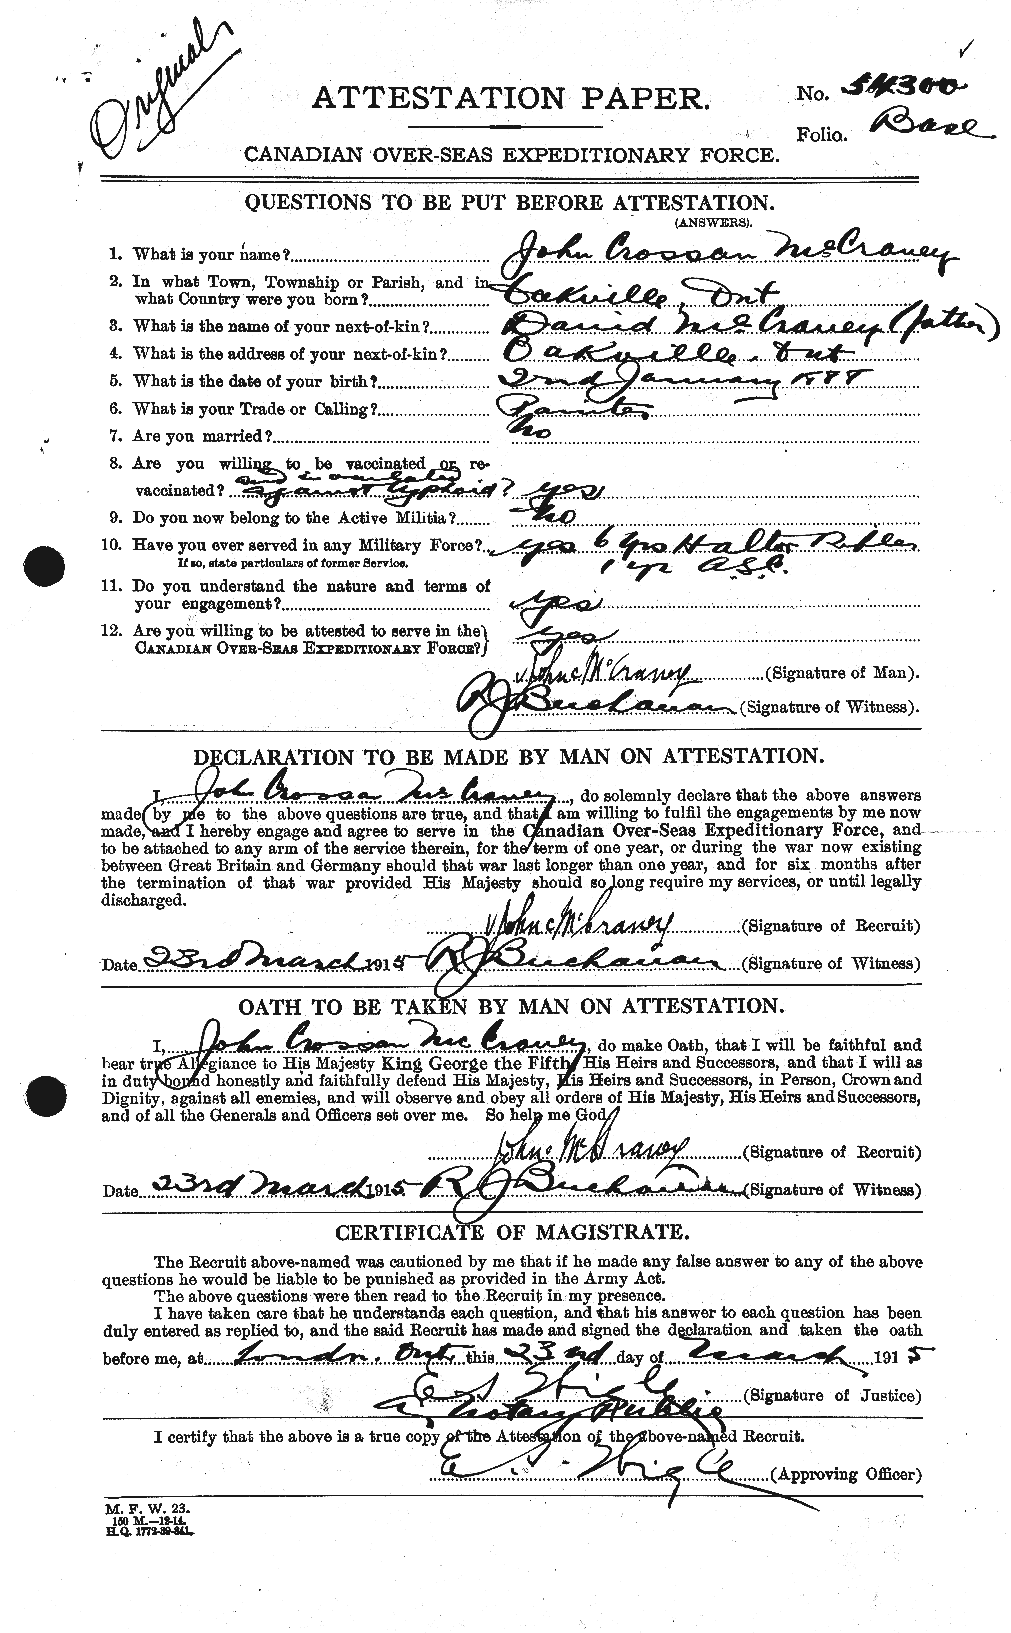 Original
ATTESTATION PAPER.
No. 54300
Folio. Base
CANADIAN OVER-SEAS EXPEDITIONARY FORCE.
QUESTIONS TO BE PUT BEFORE ATTESTATION.
(ANSWERS).
1. What is your name? John Crossan McCraney
2. In what Town, Township or Parish, and in
what Country were you born? Oakville, Ont
3. What is the name of your next-of-kin? David McCraney (father)
4. What is the address of your next-of-kin? Oakville. Ont
5. What is the date of your birth? 22nd January 1888
6. What is your Trade or Calling? Painter
7. Are you married? No
8. Are you willing to be vaccinated or re-
and inoculated
vaccinated? against typhoid? yes
9. Do you now belong to the Active Militia? No
10. Have you ever served in any Military Force? yes 6 yrs Halton Rifles
If so, state particulars of former Service. 1 yr A.S.C.
11. Do you understand the nature and terms of
your engagement? yes
12. Are you willing to be attested to serve in the
CANADIAN OVER-SEAS EXPEDITIONARY FORCE? yes
John C McCraney (Signature of Man).
R J Buchanan (Signature of Witness).
DECLARATION TO BE MADE BY MAN ON ATTESTATION.
I, John Crossan McCraney, do solemnly declare that the above answers
made by me to the above questions are true, and that I am willing to fulfil the engagements by me now
made, and I hereby engage and agree to serve in the Canadian Over-Seas Expeditionary Force, and
to be attached to any arm of the service therein, for the term of one year, or during the war now existing
between Great Britain and Germany should that war last longer than one year, and for six months after
the termination of that war provided His Majesty should so long require my services, or until legally
discharged.
John C McCraney (Signature of Recruit)
Date 23rd March 1915 R J Buchanan (Signature of Witness)
OATH TO BE TAKEN BY MAN ON ATTESTATION.
I, John Crossan McCraney, do make Oath, that I will be faithful and
bear true Allegiance to His Majesty King George the Fifth, His Heirs and Successors, and that I will as
in duty bound honestly and faithfully defend His Majesty, His Heirs and Successors, in Person, Crown and
Dignity, against all enemies, and will observe and obey all orders of His Majesty, His Heirs and Successors,
and of all the Generals and Officers set over me. So help me God.
John C McCraney (Signature of Recruit)
Date 23rd March 1915 R J Buchanan (Signature of Witness)
CERTIFICATE OF MAGISTRATE.
The Recruit above-named was cautioned by me that if he made any false answer to any of the above
questions he would be liable to be punished as provided in the Army Act.
The above questions were then read to the Recruit in my presence.
I have taken care that he understands each question, and that his answer to each question has been
duly entered as replied to, and the said Recruit has made and signed the declaration and taken the oath
before me, at London. Ont. this 23rd day of March 1915
E S Wigle (Signature of Justice)
A Notary Public
I certify that the above is a true copy of the Attestation of the above-named Recruit.
E. S. Wigle (Approving Officer)
M. F. W. 23.
150 M.—12-14.
H.Q. 1772-39-841.